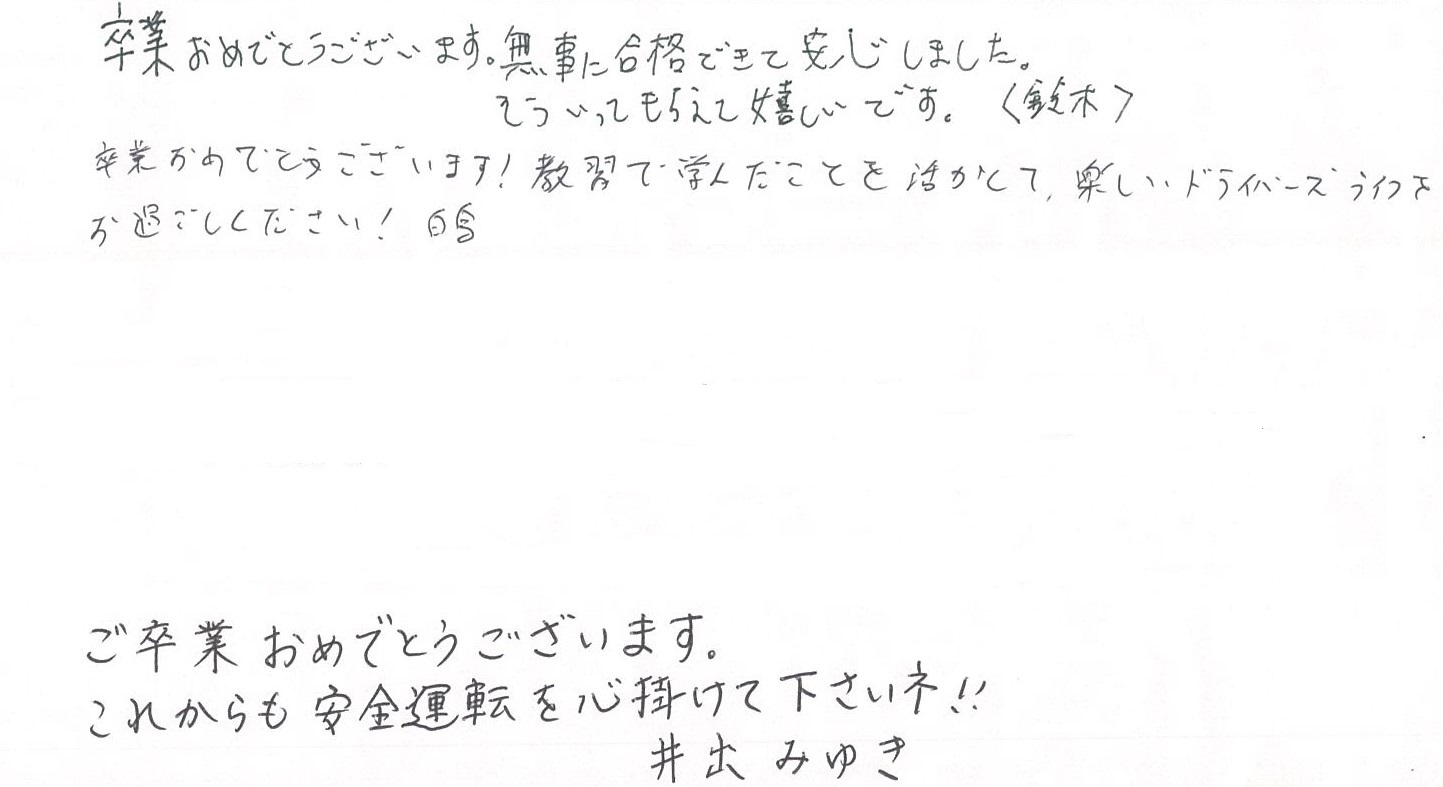 卒業おめでとうございます。無事に合格できて安心しました。
そういってもらえて嬉しいです。〈鈴木〉
卒業おめでとうございます！教習で学んだことを活かして、楽しいドライバーズライフを
お過ごしください！
ご卒業おめでとうございます。
これからも安全運転を心掛けて下さいネ!!
井出みゆき